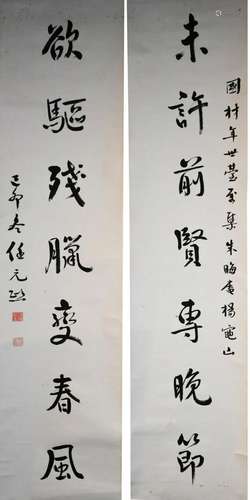 國材年世臺 集朱晦庵楊龜山
未許前賢專晚節
欲驅殘臘變春風
己卯冬任元熙